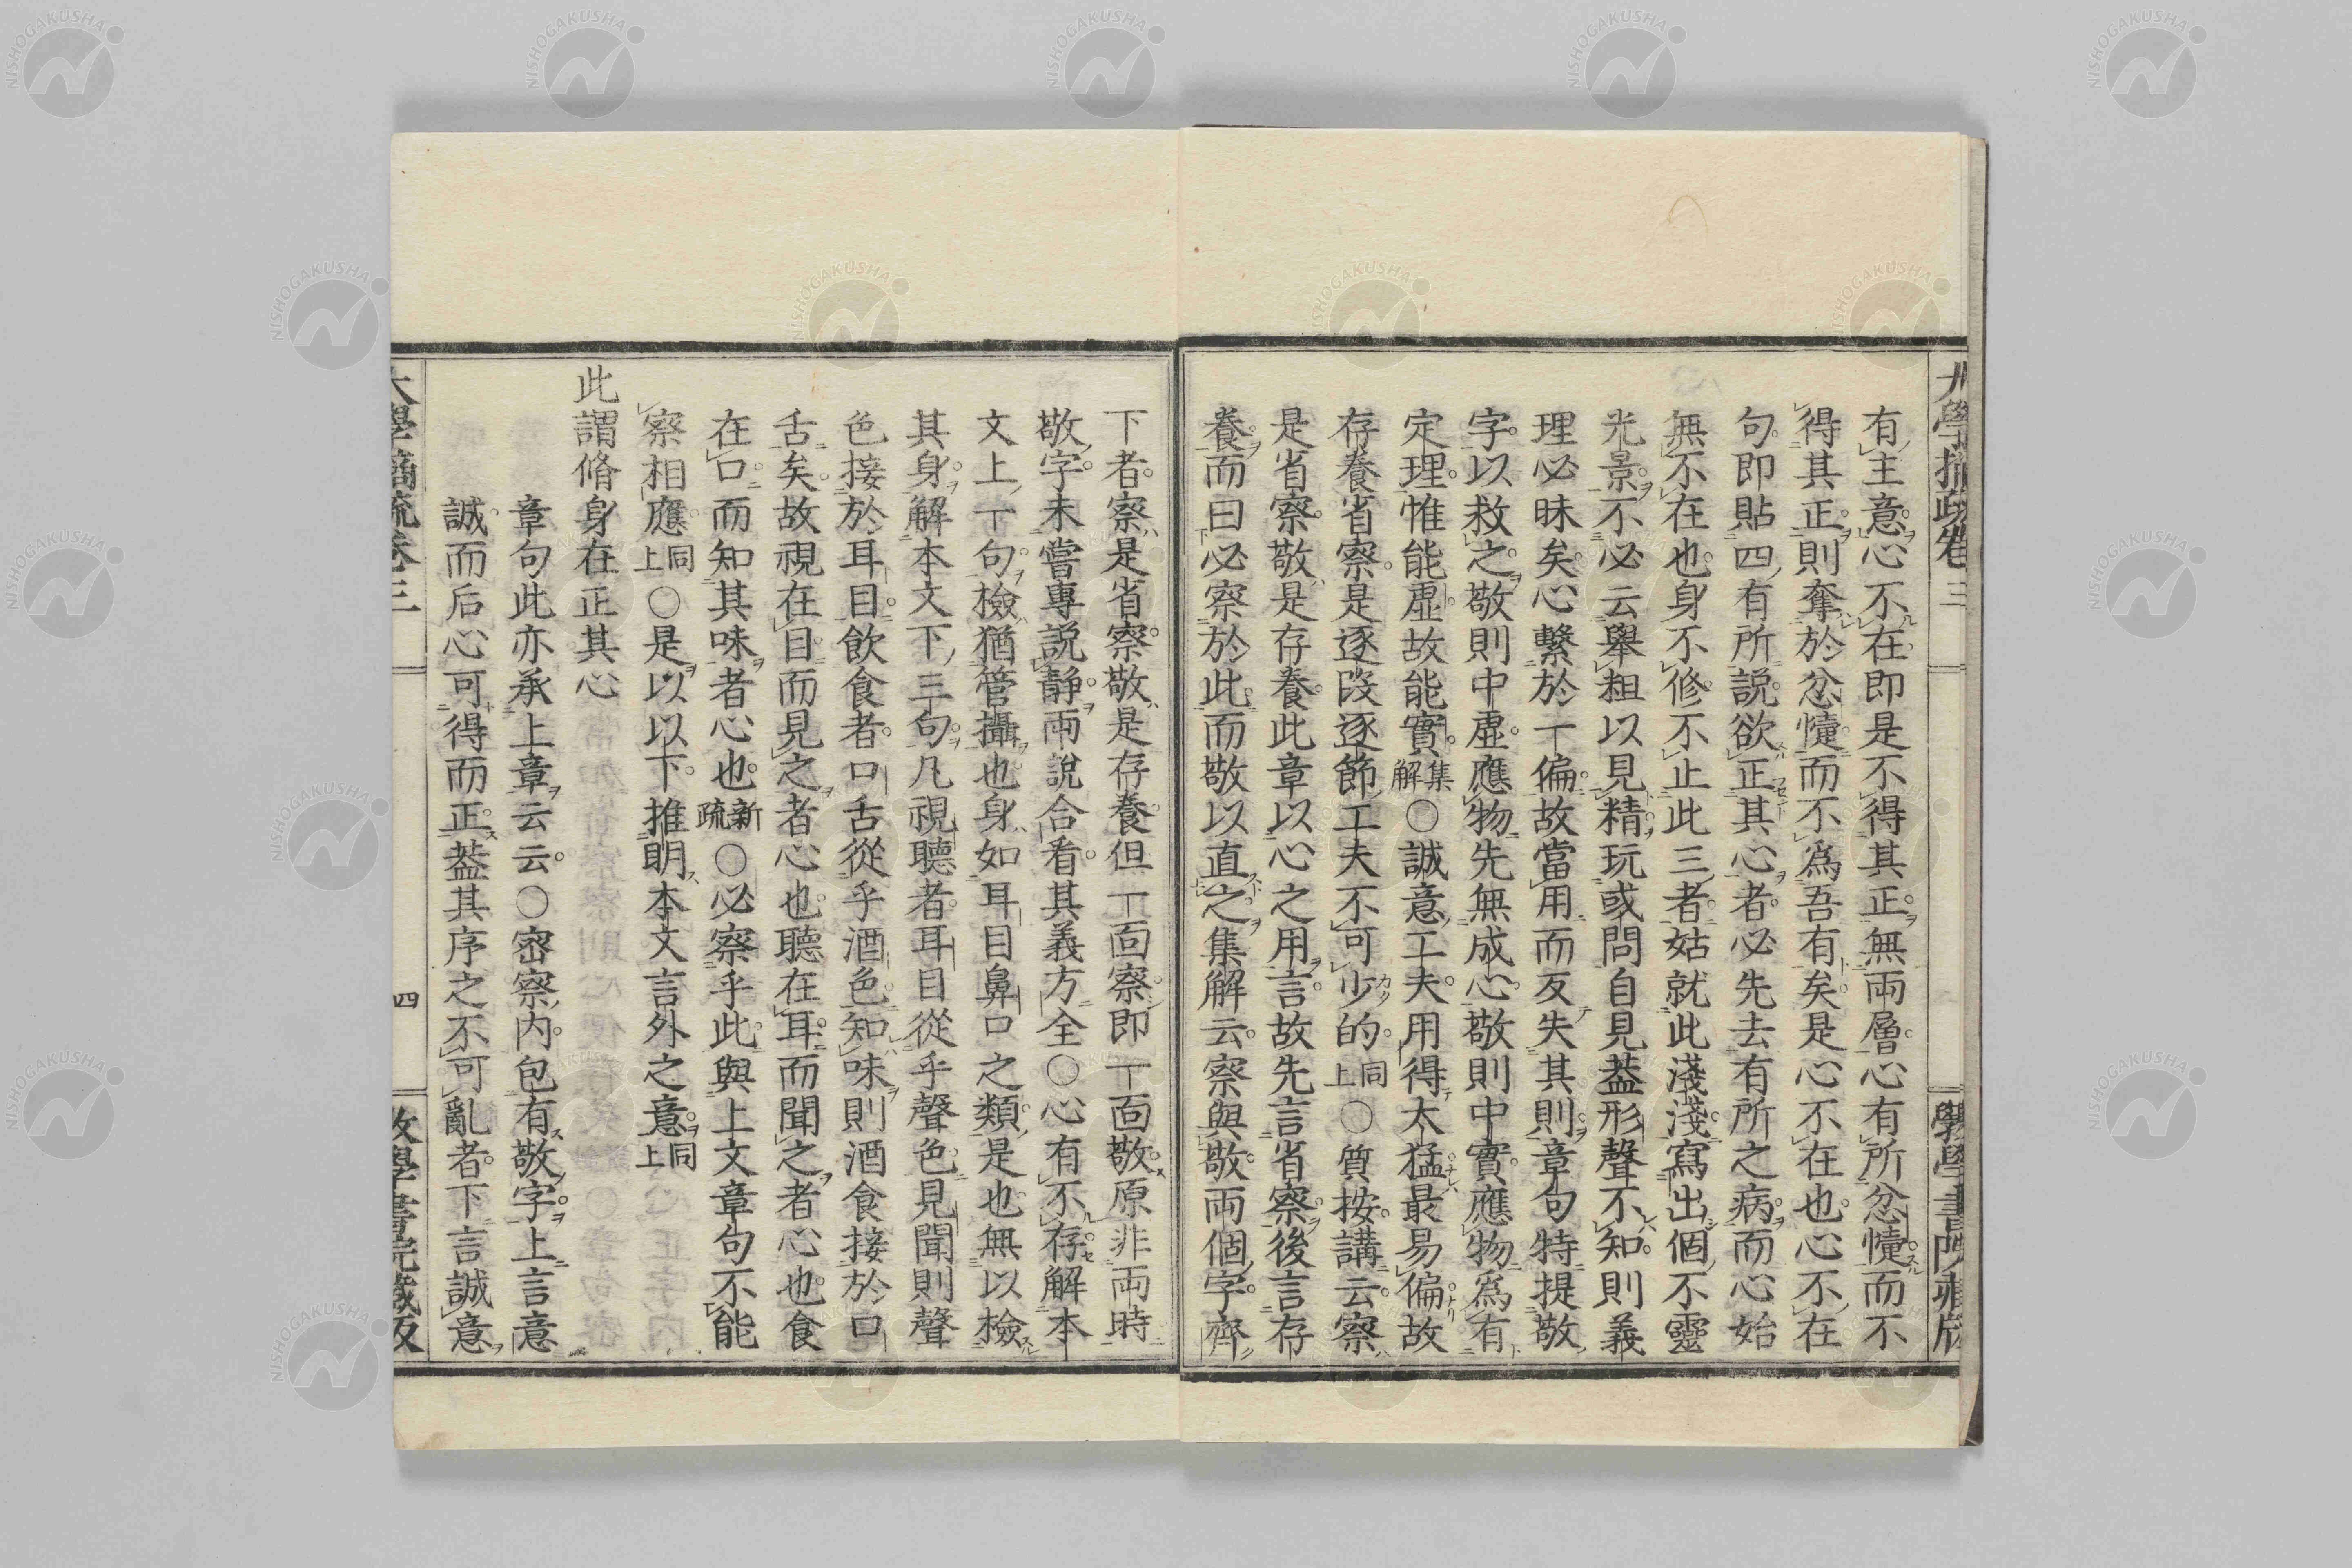 大學摘疏卷三
斅學書院藏版
有主意心不在即是不得其正無兩層心有所忿懥而不
得其正則奪於忿懥而不爲吾有矣是心不在也心不在
句即貼四有所說欲正其心者必先去有所之病而心始
無不在也身不修不止此三者姑就此淺淺寫出個不靈
光景不必云舉粗以見精玩或問自見葢形聲不知則義
理必昧矣心繫於一偏故當用而反失其則章句特提敬
字以救之敬則中虛應物先無成心敬則中實應物爲有
定理惟能虛故能實集解○誠意工夫用得太猛最易偏故
存養省察是逐段逐節工夫不可少的同上○質按講云察
是省察敬是存養此章以心之用言故先言省察後言存
養而曰必察於此而敬以直之集解云察與敬兩個字齊
下者察是省察敬是存養但一面察即一面敬原非兩時
敬字未嘗專說靜兩說合看其義方全○心有不存解本
文上一句檢猶管攝也身如耳目鼻口之類是也無以檢
其身解本文下三句凡視聽者耳目從乎聲色見聞則聲
色接於耳目飲食者口舌從乎酒色知味則酒食接於口
舌矣故視在目而見之者心也聽在耳而聞之者心也食
在口而知其味者心也新疏○必察乎此與上文章句不能
察相應同上○是以以下推明本文言外之意同上
此謂脩身在正其心
章句此亦承上章云云○密察內包有敬字上言意
誠而后心可得而正葢其序之不可亂者下言誠意
大學摘疏卷三
四
斅學書院藏版
NISHOGAKUSHA